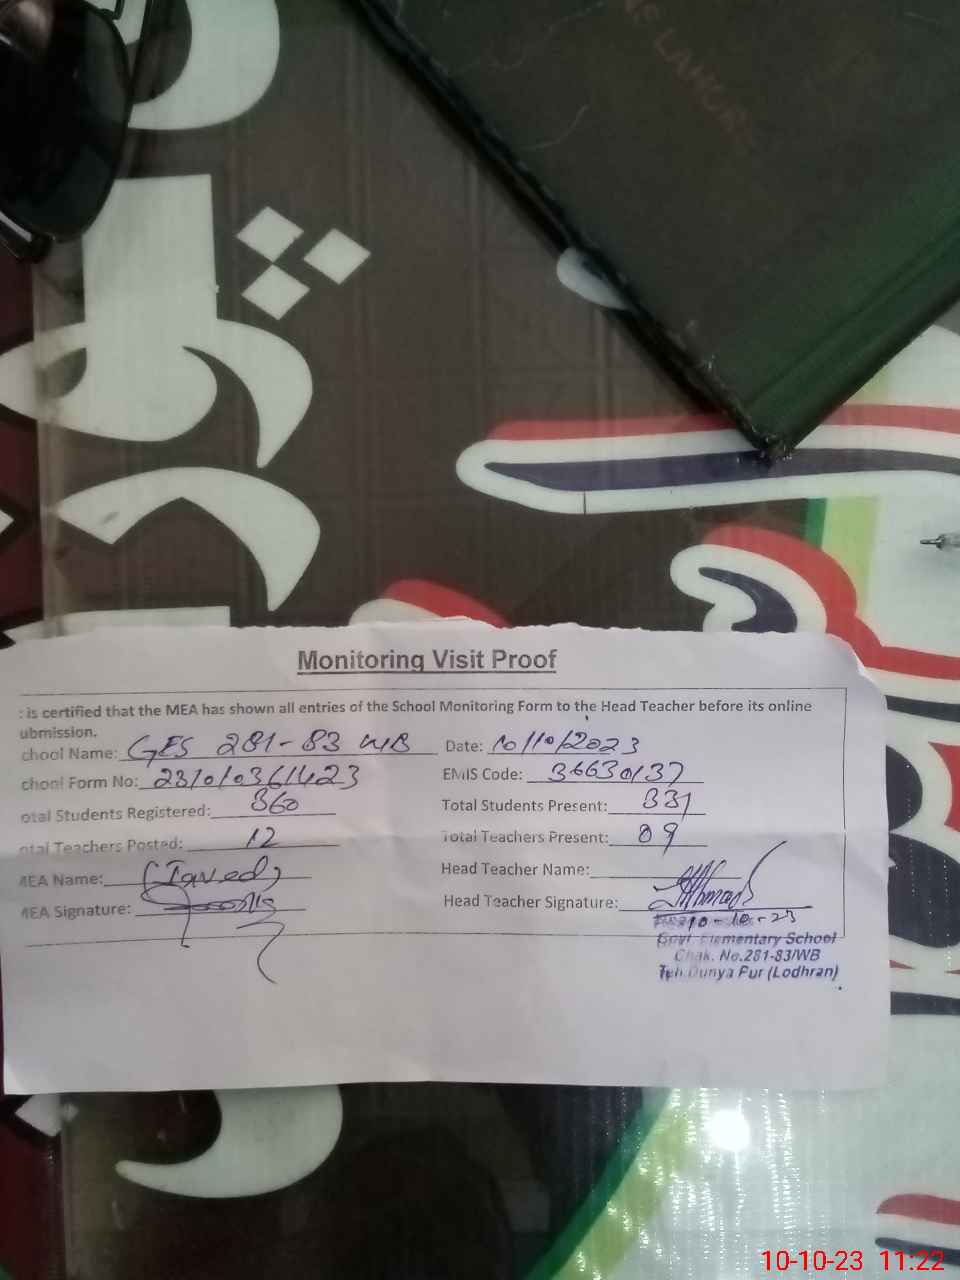 LAHORE
Monitoring Visit Proof
: is certified that the MEA has shown all entries of the School Monitoring Form to the Head Teacher before its online
ubmission.
chool Name: GES 281-83 WB Date: 10/10/2023
chool Form No: 231010361423 EMIS Code: 36630137
otal Students Registered: 360 Total Students Present: 331
otal Teachers Posted: 12 Total Teachers Present: 09
MEA Name: (Javed) Head Teacher Name:
MEA Signature: Head Teacher Signature:
10-10-23
Govt. Elementary School
Chak. No.281-83/WB
Teh Dunya Pur (Lodhran)
10-10-23 11:22